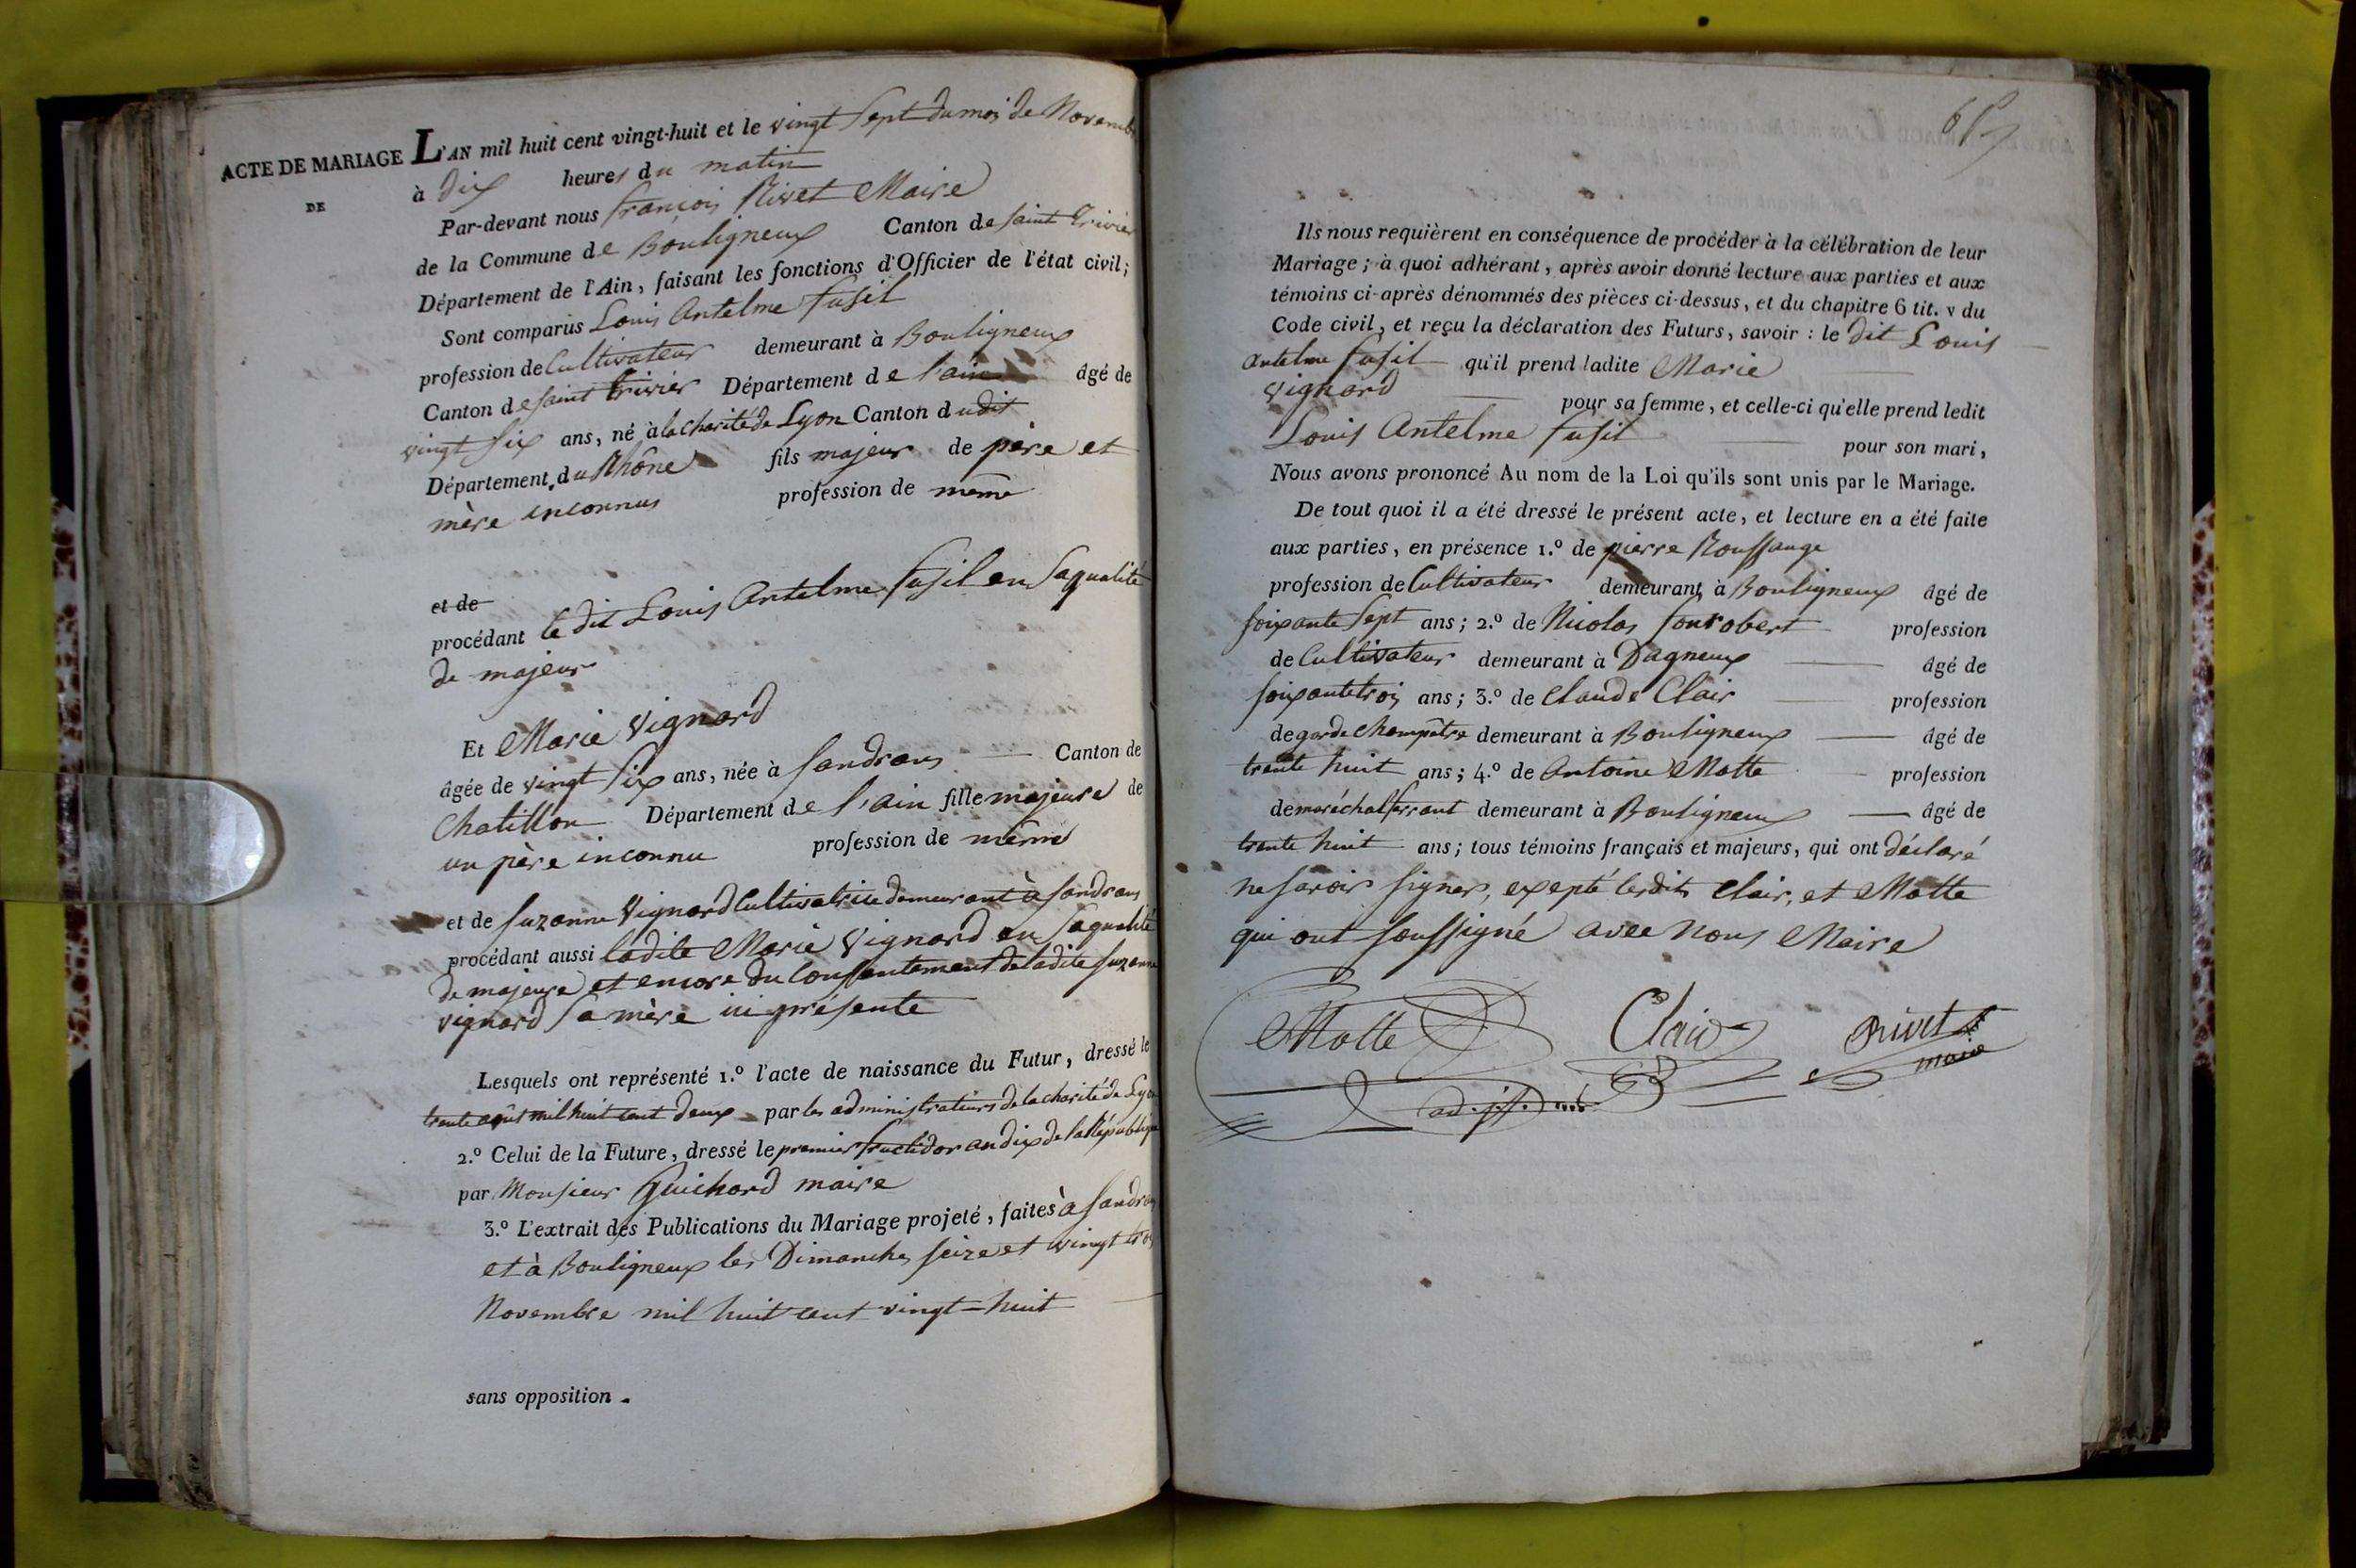 ACTE DE MARIAGE
DE
L'AN mil huit cent vingt-huit et le vingt Sept du mois de Novembre
à dix heures du matin
Par-devant nous françois Rivet Maire
de la Commune de Bouligneux Canton de saint Trivier
Département de l'Ain, faisant les fonctions d'Officier de l'état civil;
Sont comparus Louis Antelme fusil
profession de Cultivateur demeurant à Bouligneux
Canton de saint trivier Département de l'ain âgé de
vingt six ans, né à la charité de Lyon Canton dudit
Département du Rhône fils majeur de père et
mère inconnus profession de même
et de
procédant le dit Louis Antelme fusil en sa qualité
de majeur
Et Marie Vignard
âgée de vingt six ans, née à Sandrans Canton de
Chatillon Département de l'ain fille majeure de
un père inconnu profession de même
et de suzanne Vignard Cultivatrice demeurant à Sandrans
procédant aussi ladite Marie Vignard en sa qualité
de majeure et encore du Consentement de ladite suzanne
vignard sa mère ici présente
Lesquels ont représenté 1.º l'acte de naissance du Futur, dressé le
trente août mil huit cent deux par les administrateurs de la charité de Lyon
2.º Celui de la Future, dressé le premier fructidor an dix de la République
par Monsieur Guichard maire
3.º L'extrait des Publications du Mariage projeté, faites à Sandrans
et à Bouligneux les Dimanches seize et vingt trois
Novembre mil huit cent vingt-huit
sans opposition.
Ils nous requièrent en conséquence de procéder à la célébration de leur
Mariage; à quoi adhérant, après avoir donné lecture aux parties et aux
témoins ci-après dénommés des pièces ci-dessus, et du chapitre 6 tit. v du
Code civil, et reçu la déclaration des Futurs, savoir: le dit Louis
antelme fusil qu'il prend ladite Marie
Vignard pour sa femme, et celle-ci qu'elle prend ledit
Louis Antelme fusil pour son mari,
Nous avons prononcé Au nom de la Loi qu'ils sont unis par le Mariage.
De tout quoi il a été dressé le présent acte, et lecture en a été faite
aux parties, en présence 1.º de pierre Roussange
profession de Cultivateur demeurant à Bouligneux âgé de
soixante Sept ans; 2.º de Nicolas fourobert profession
de Cultivateur demeurant à Dagneux âgé de
soixante trois ans; 3.º de Claude Clair profession
de garde champêtre demeurant à Bouligneux âgé de
trente huit ans; 4.º de Antoine Matte profession
de maréchal ferrant demeurant à Bouligneux âgé de
trente huit ans; tous témoins français et majeurs, qui ont déclaré
ne savoir signer, exepté lesdits Clair, et Matte
qui ont soussigné avec nous Maire
Matte Clair Rivet
maire